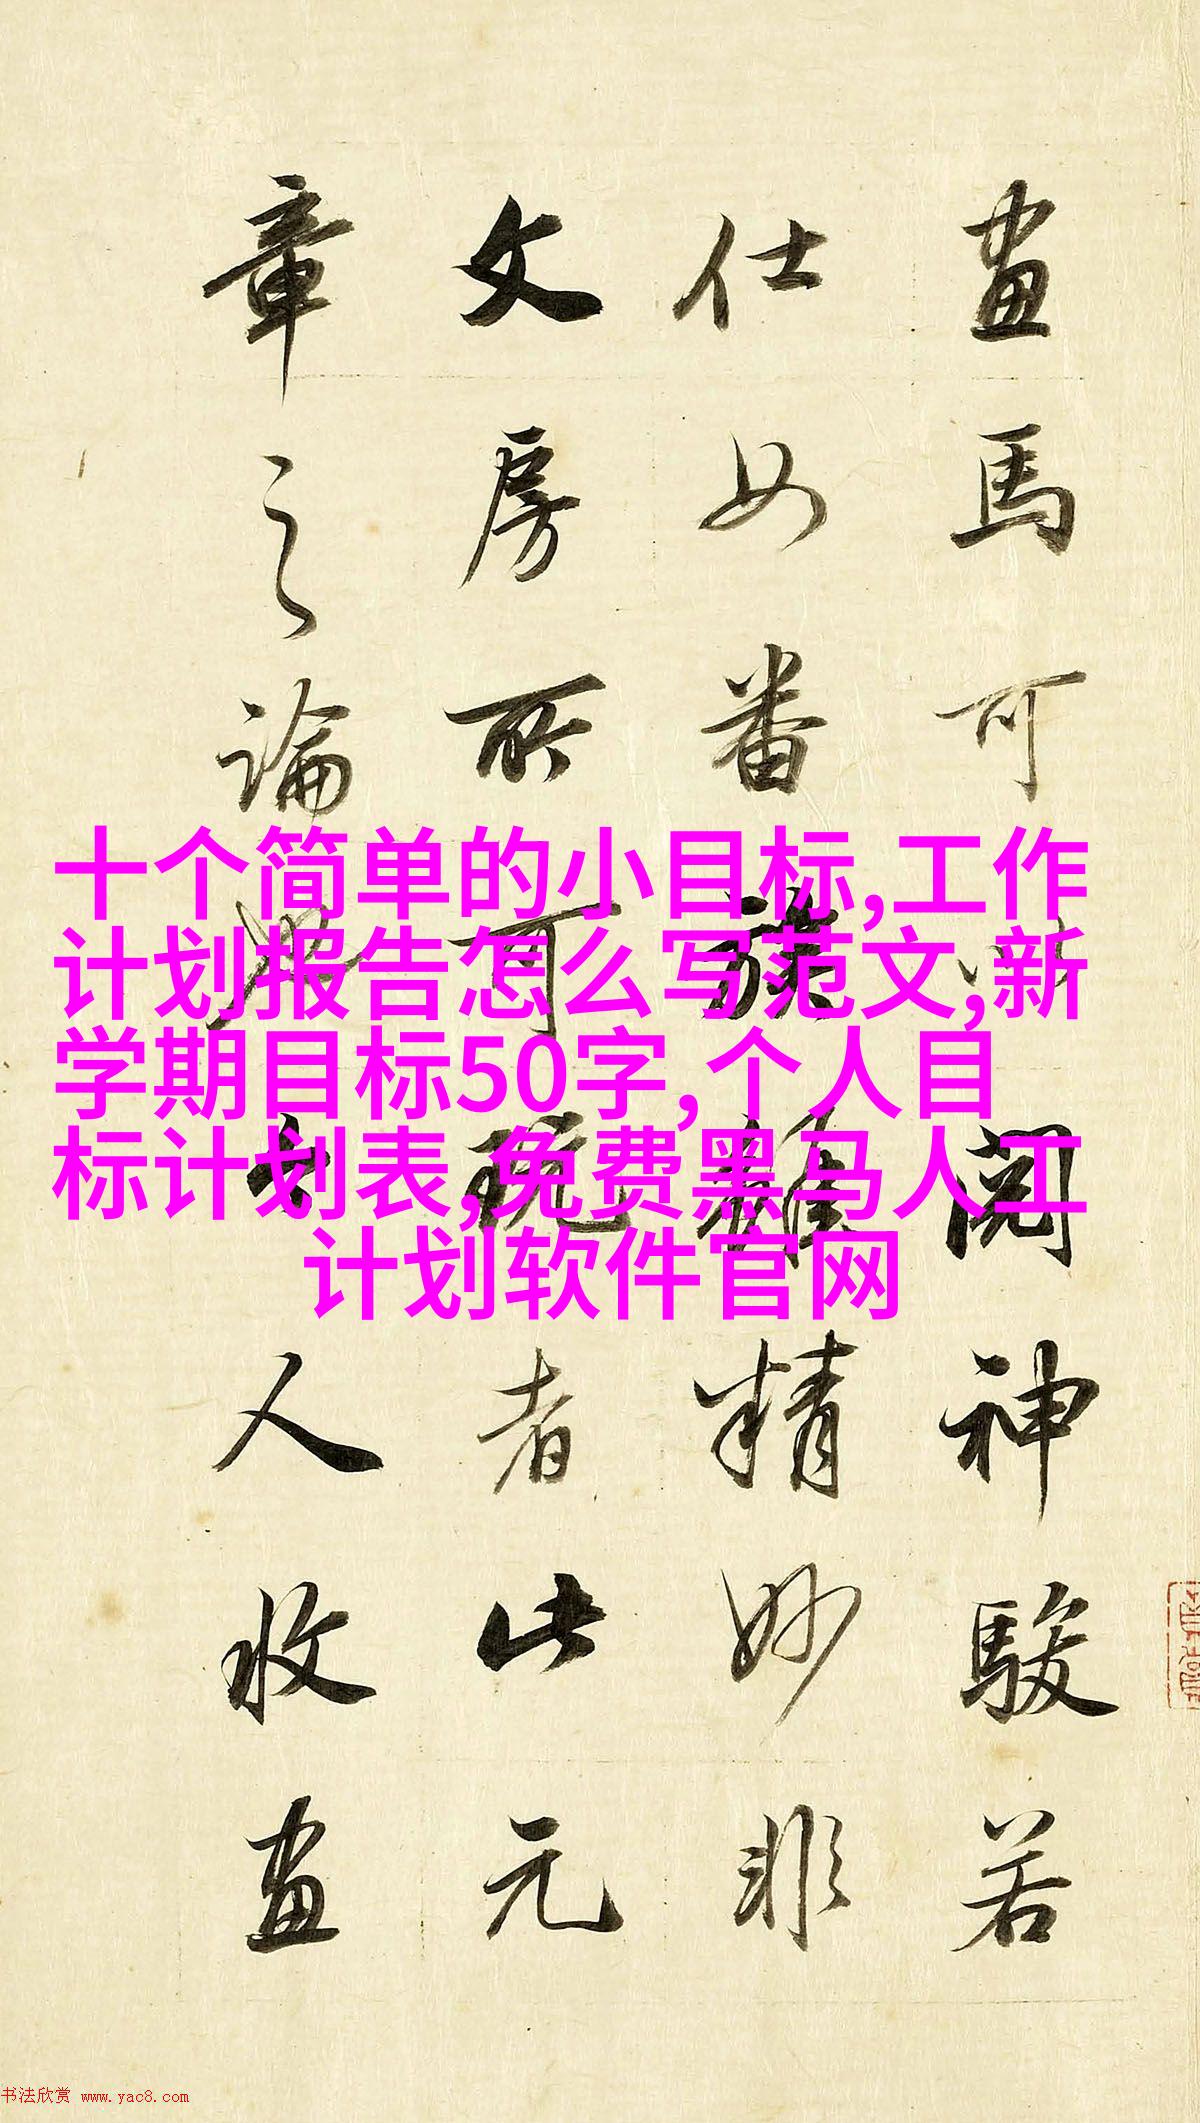 畫馬可以閱神駿若
仕女番族雖精妙非
文房所可玩者此元
章之論人收畫
十个简单的小目标,工作
计划报告怎么写范文,新
学期目标50字,个人目
标计划表,免费黑马人工
计划软件官网
书法欣赏 www.yac8.com